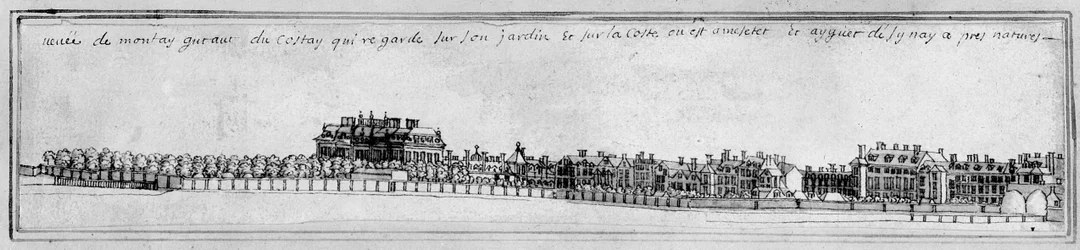 veuëe de montay gutaut du Costay qui re garde sur son jardin Et sur la Coste ou est amestet Et ayguet désynay a pres natures